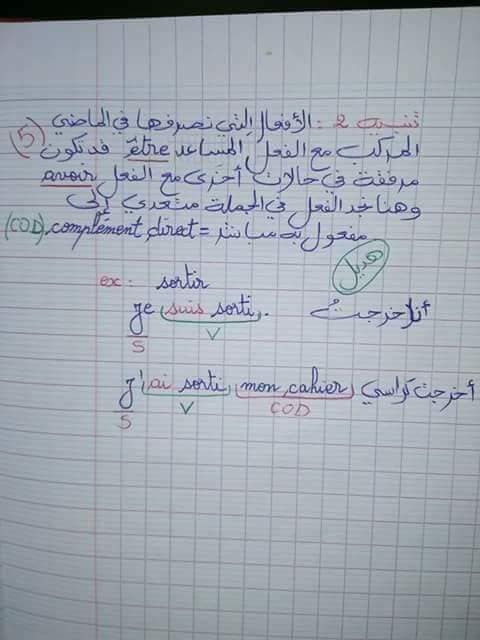 تنبيه 2 : الأفعال التي نصرفها في الماضي
(5) المركب مع الفعل المساعد être قد تكون
مرفقة في حالات أخرى مع الفعل avoir
وهنا نجد الفعل في الجملة متعدي إلى
مفعول به مباشر = complément direct (COD).
هديل
ex: sortir
je suis sorti. أنا خرجتُ
S V
J'ai sorti mon cahier أخرجت كراسي
S V COD